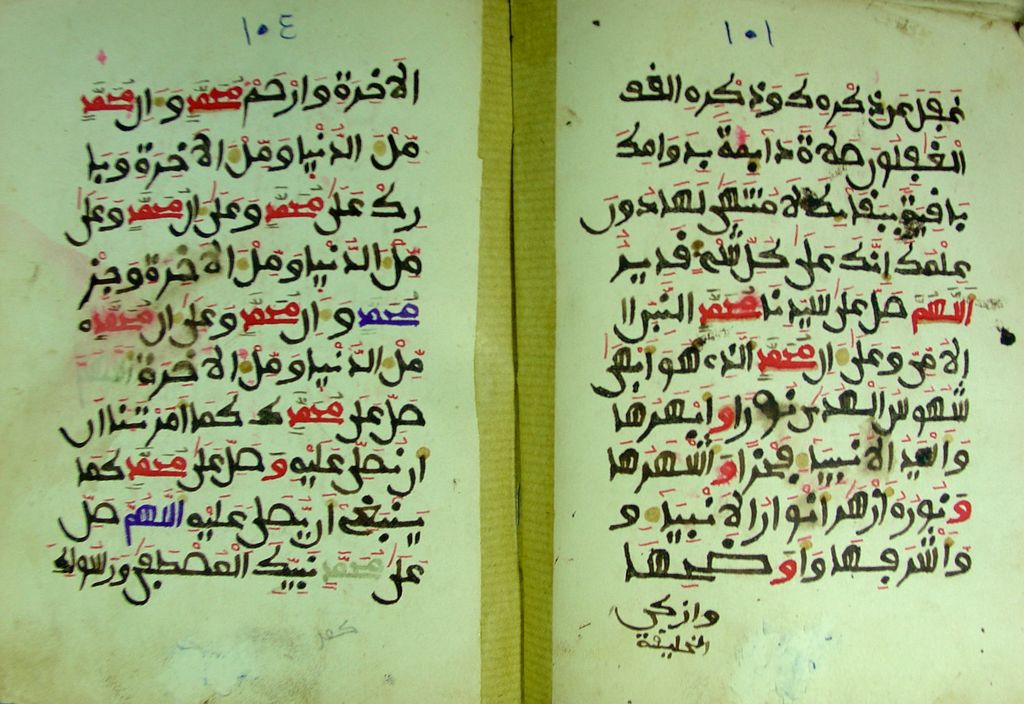 ١٠١
غفل عن ذكرك وذكره الغـ
الغفلون صلاة دايمة بدوامك
باقية ببقايك لا منتهى لها دون
علمك انك على كل شيء قدير
اللهم صل على سيدنا محمد النبي ا
الامي وعلى ال محمد الذي هو ابهى
شموس الهدى نورا وابهرها
واسير الانبياء فخرا واشهرها
ونوره ازهر انوار الانبياء و
واشرفها واوضحها
وازكى
الخليقة
١٠٤
الاخرة وارحم محمد وال محمد
مل الدنيا ومل الاخرة وبا
رك على محمد وعلى ال محمد وعلى
مل الدنيا ومل الاخرة وجز
محمد وال محمد وعلى ال محمد
مل الدنيا ومل الاخرة اللهم
صل على محمد كما امرتنا ان
ان نصلي عليه وصل على محمد كما
ينبغي ان يصلى عليه اللهم صل
على محمد نبيك المصطفى ورسولك